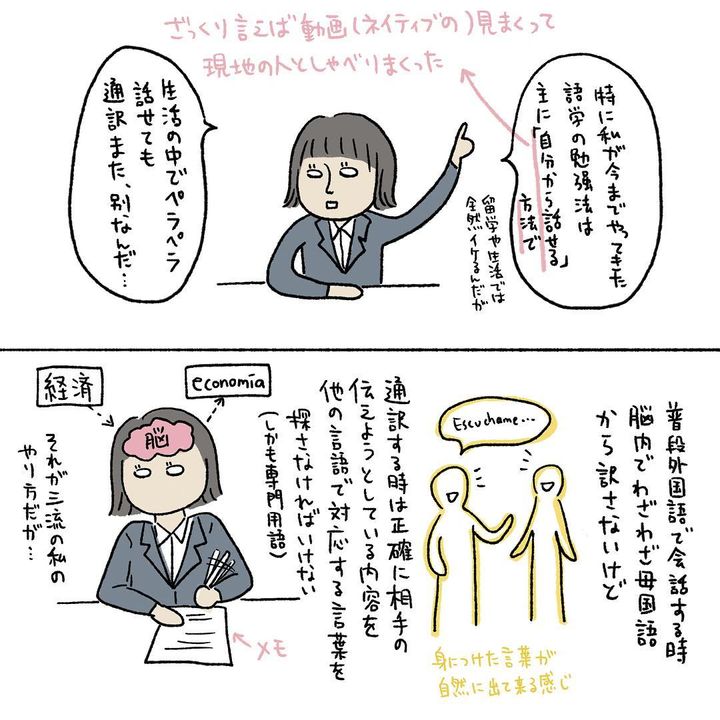 ざっくり言えば動画(ネイティブの)見まくって
現地の人としゃべりまくった
特に私が今までやってきた
語学の勉強法は
主に「自分から話せる」
方法で
留学や生活では
全然イケるんだが
生活の中でペラペラ
話せても
通訳また、別なんだ…
普段外国語で会話する時
脳内でわざわざ母国語
から訳さないけど
Escuchame...
身につけた言葉が
自然に出て来る感じ
通訳する時は正確に相手の
伝えようとしている内容を
他の言語で対応する言葉を
探さなければいけない
(しかも専門用語)
経済
economía
脳
それが三流の私の
やり方だが…
メモ